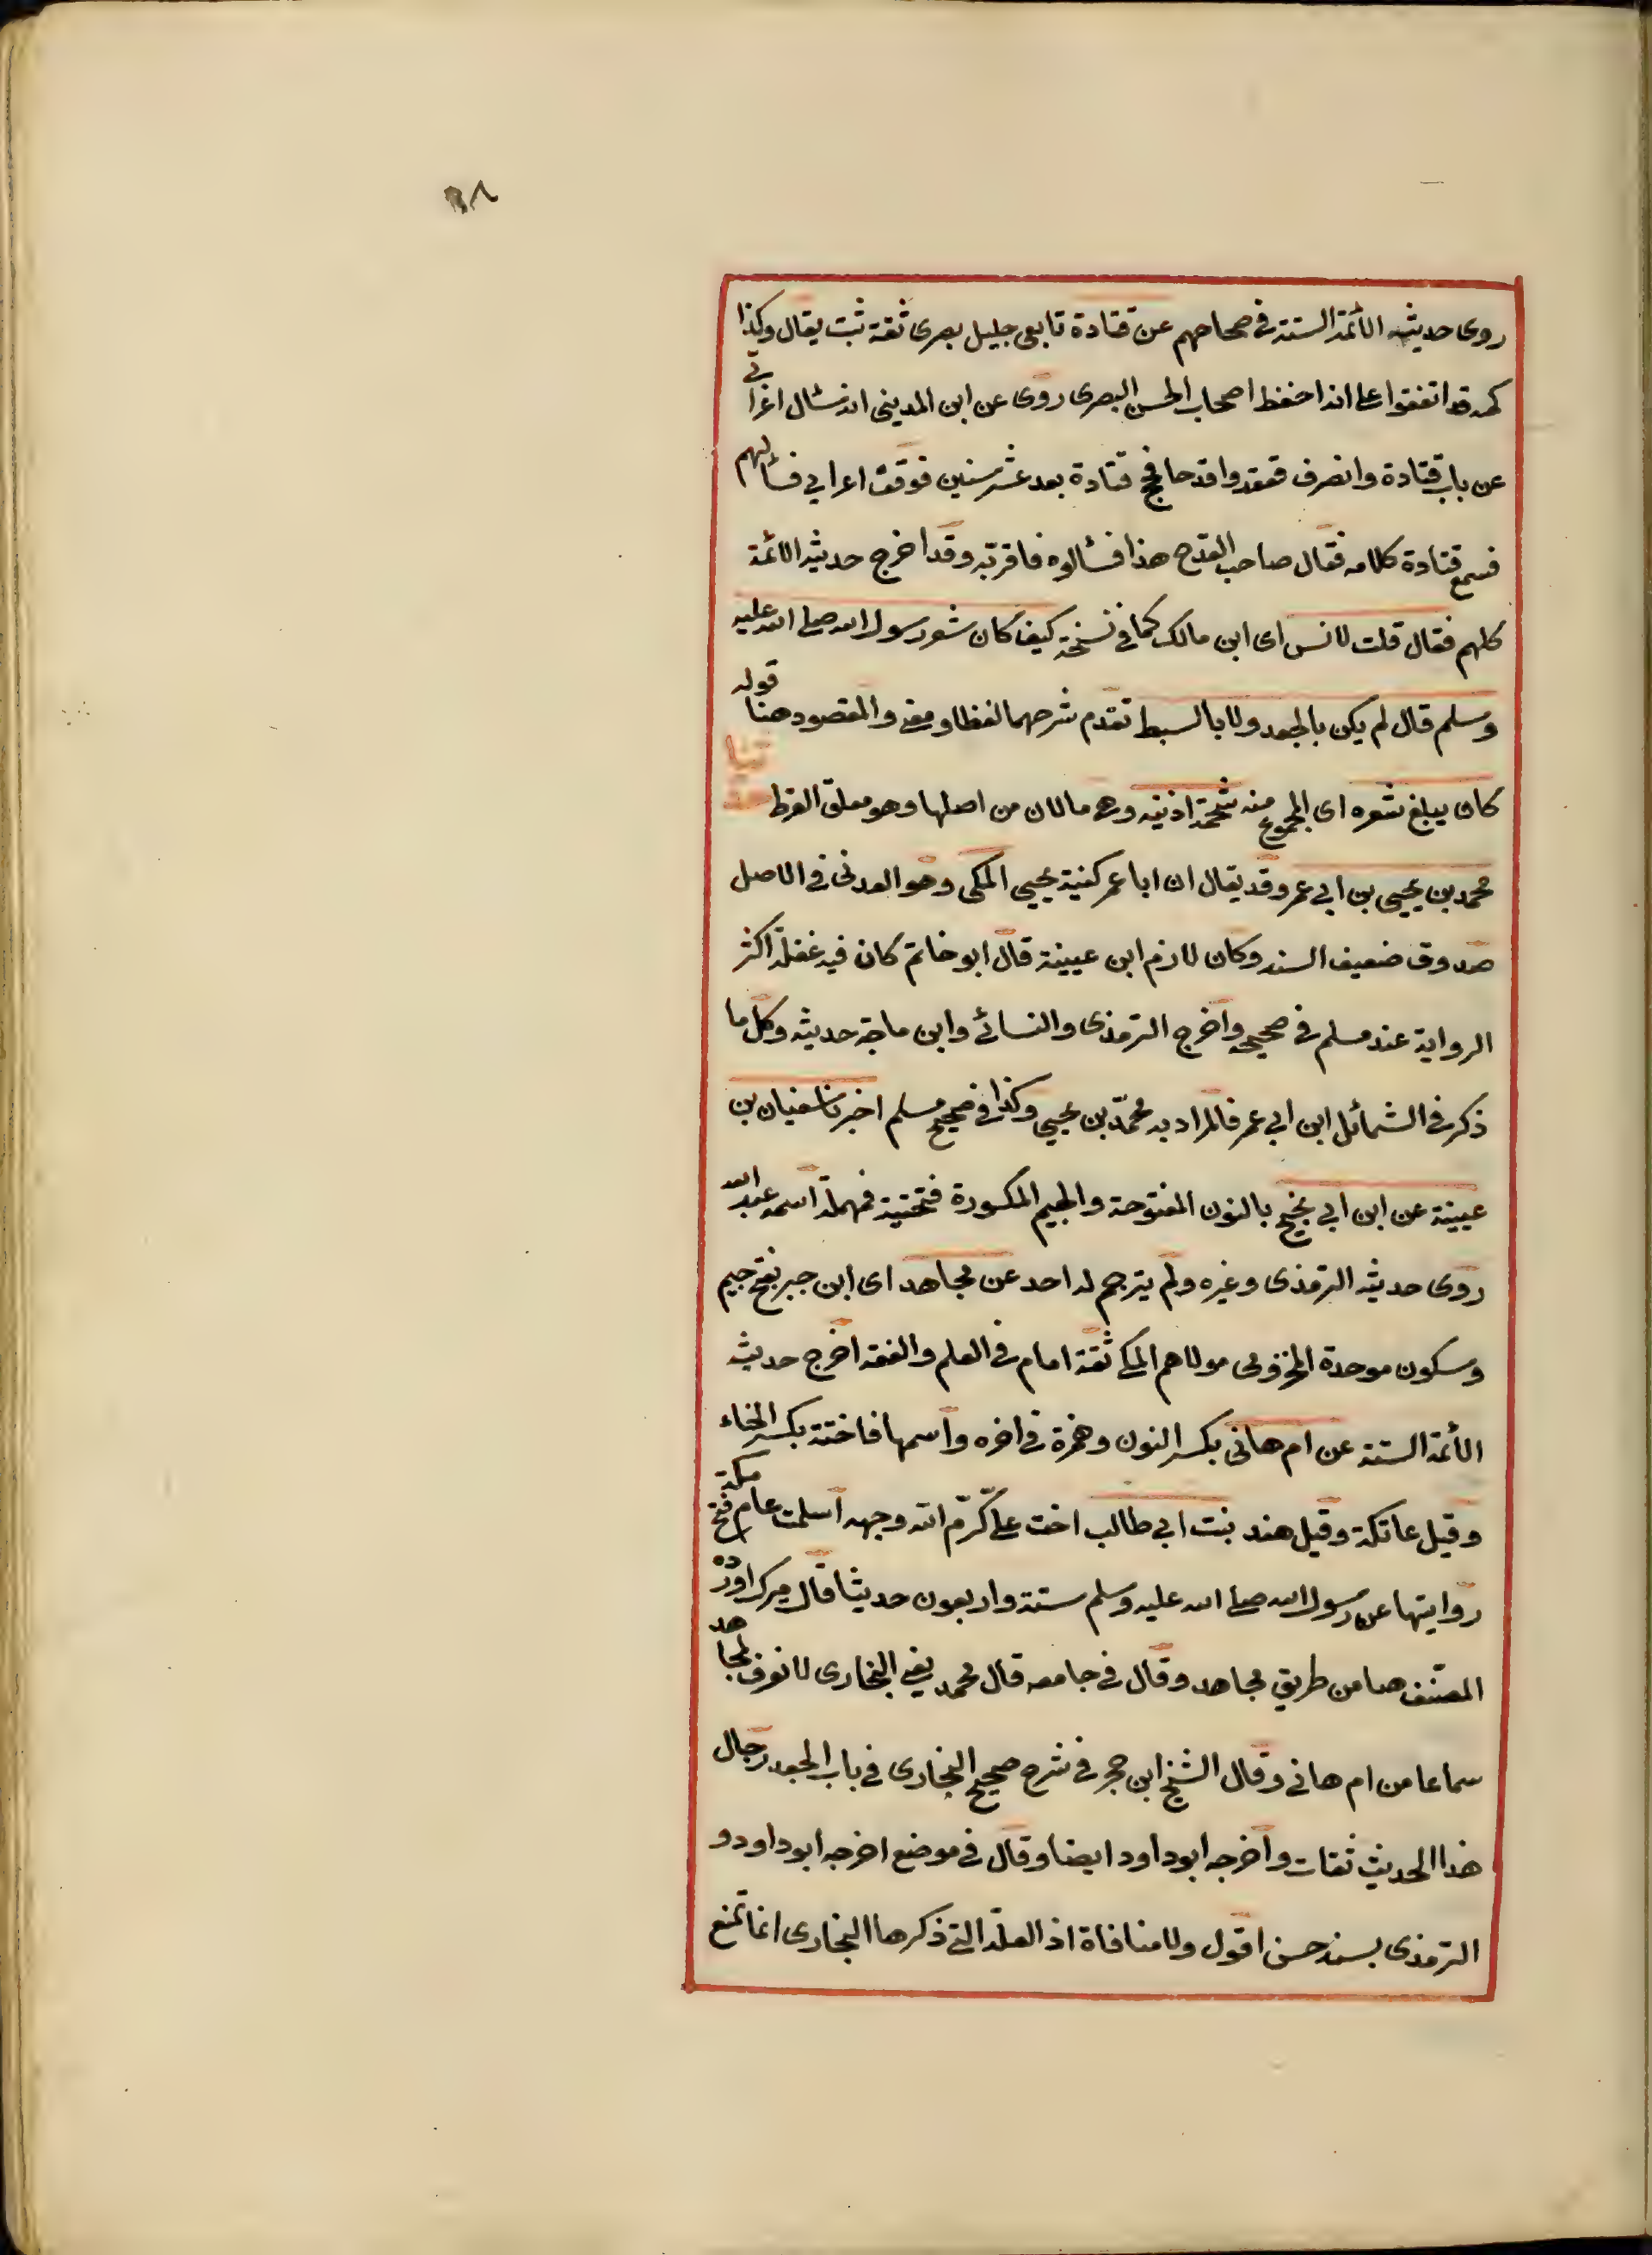 ٩٨
روى حديثه الائمة الستة في صحاحهم عن قتادة تابعى جليل بصرى ثقة ثبت يقال وكذا
كمه قد اتفقوا على انه احفظ اصحاب الحسن البصرى روى عن ابن المدينى انه سئال اعرابي
عن باب قتادة وانصرف ففقدوا قدحا فحج قتادة بعد عشر سنين فوقف اعرابي فسئالهم
فسمع قتادة كلامه فقال صاحب القدح هذا فسئالوه فاقر به وقد اخرج حديثه الائمة
كلهم فقال قلت لانس اى ابن مالك كما في نسخة كيف كان شعر رسول الله صلى الله عليه
وسلم قال لم يكن بالجعد ولا بالسبط تقدم شرحهما لفظا ومعنى والمقصود هنا قوله
كان يبلغ شعره اى المجموع منه شحمة اذنيه وهى مالان من اصلها وهو معلق القرط حدثنا
محمد بن يحيى بن ابي عمر وقد يقال ان ابا عمر كنية يحيى المكى وهو العدنى في الاصل
صدوق ضعيف السند وكان لازم ابن عيينة قال ابو خاتم كان فيه غفلة اكثر
الرواية عند مسلم في صحيحه واخرج الترمذى والنسائى وابن ماجة حديثه وكل ما
ذكر في الشمائل ابن ابي عمر فالمراد به محمد بن يحيى وكذا في صحيح مسلم اخبرنا سفيان بن
عيينة عن ابن ابي نجيح بالنون المفتوحة والجيم المكسورة فتحتية فمهملة اسمه عبد الله
روى حديثه الترمذى وغيره ولم يترجم له احد عن مجاهد اى ابن جبر بفتح جيم
وسكون موحدة المخزومى مولاهم المكي ثقة امام في العلم والفقه اخرج حديثه
الائمة الستة عن ام هانى بكسر النون وهمزة في اخره واسمها فاختة بكسر الخاء
وقيل عاتكة وقيل هند بنت ابي طالب اخت على كرّم الله وجهه اسلمت عام فتح مكة
روايتها عن رسول الله صلى الله عليه وسلم ستة واربعون حديثا قال ميرك اورده
المصنف هنا من طريق مجاهد وقال في جامعه قال محمد يعنى البخارى لا نعرف لمجاهد
سماعا من ام هاني وقال الشيخ ابن حجر في شرح صحيح البخارى في باب الجعد رجال
هذا الحديث ثقات واخرجه ابو داود ايضا وقال في موضع اخرجه ابو داود و
الترمذى بسند حسن اقول ولا منافاة اذ العلة التي ذكرها البخارى انما تمنع